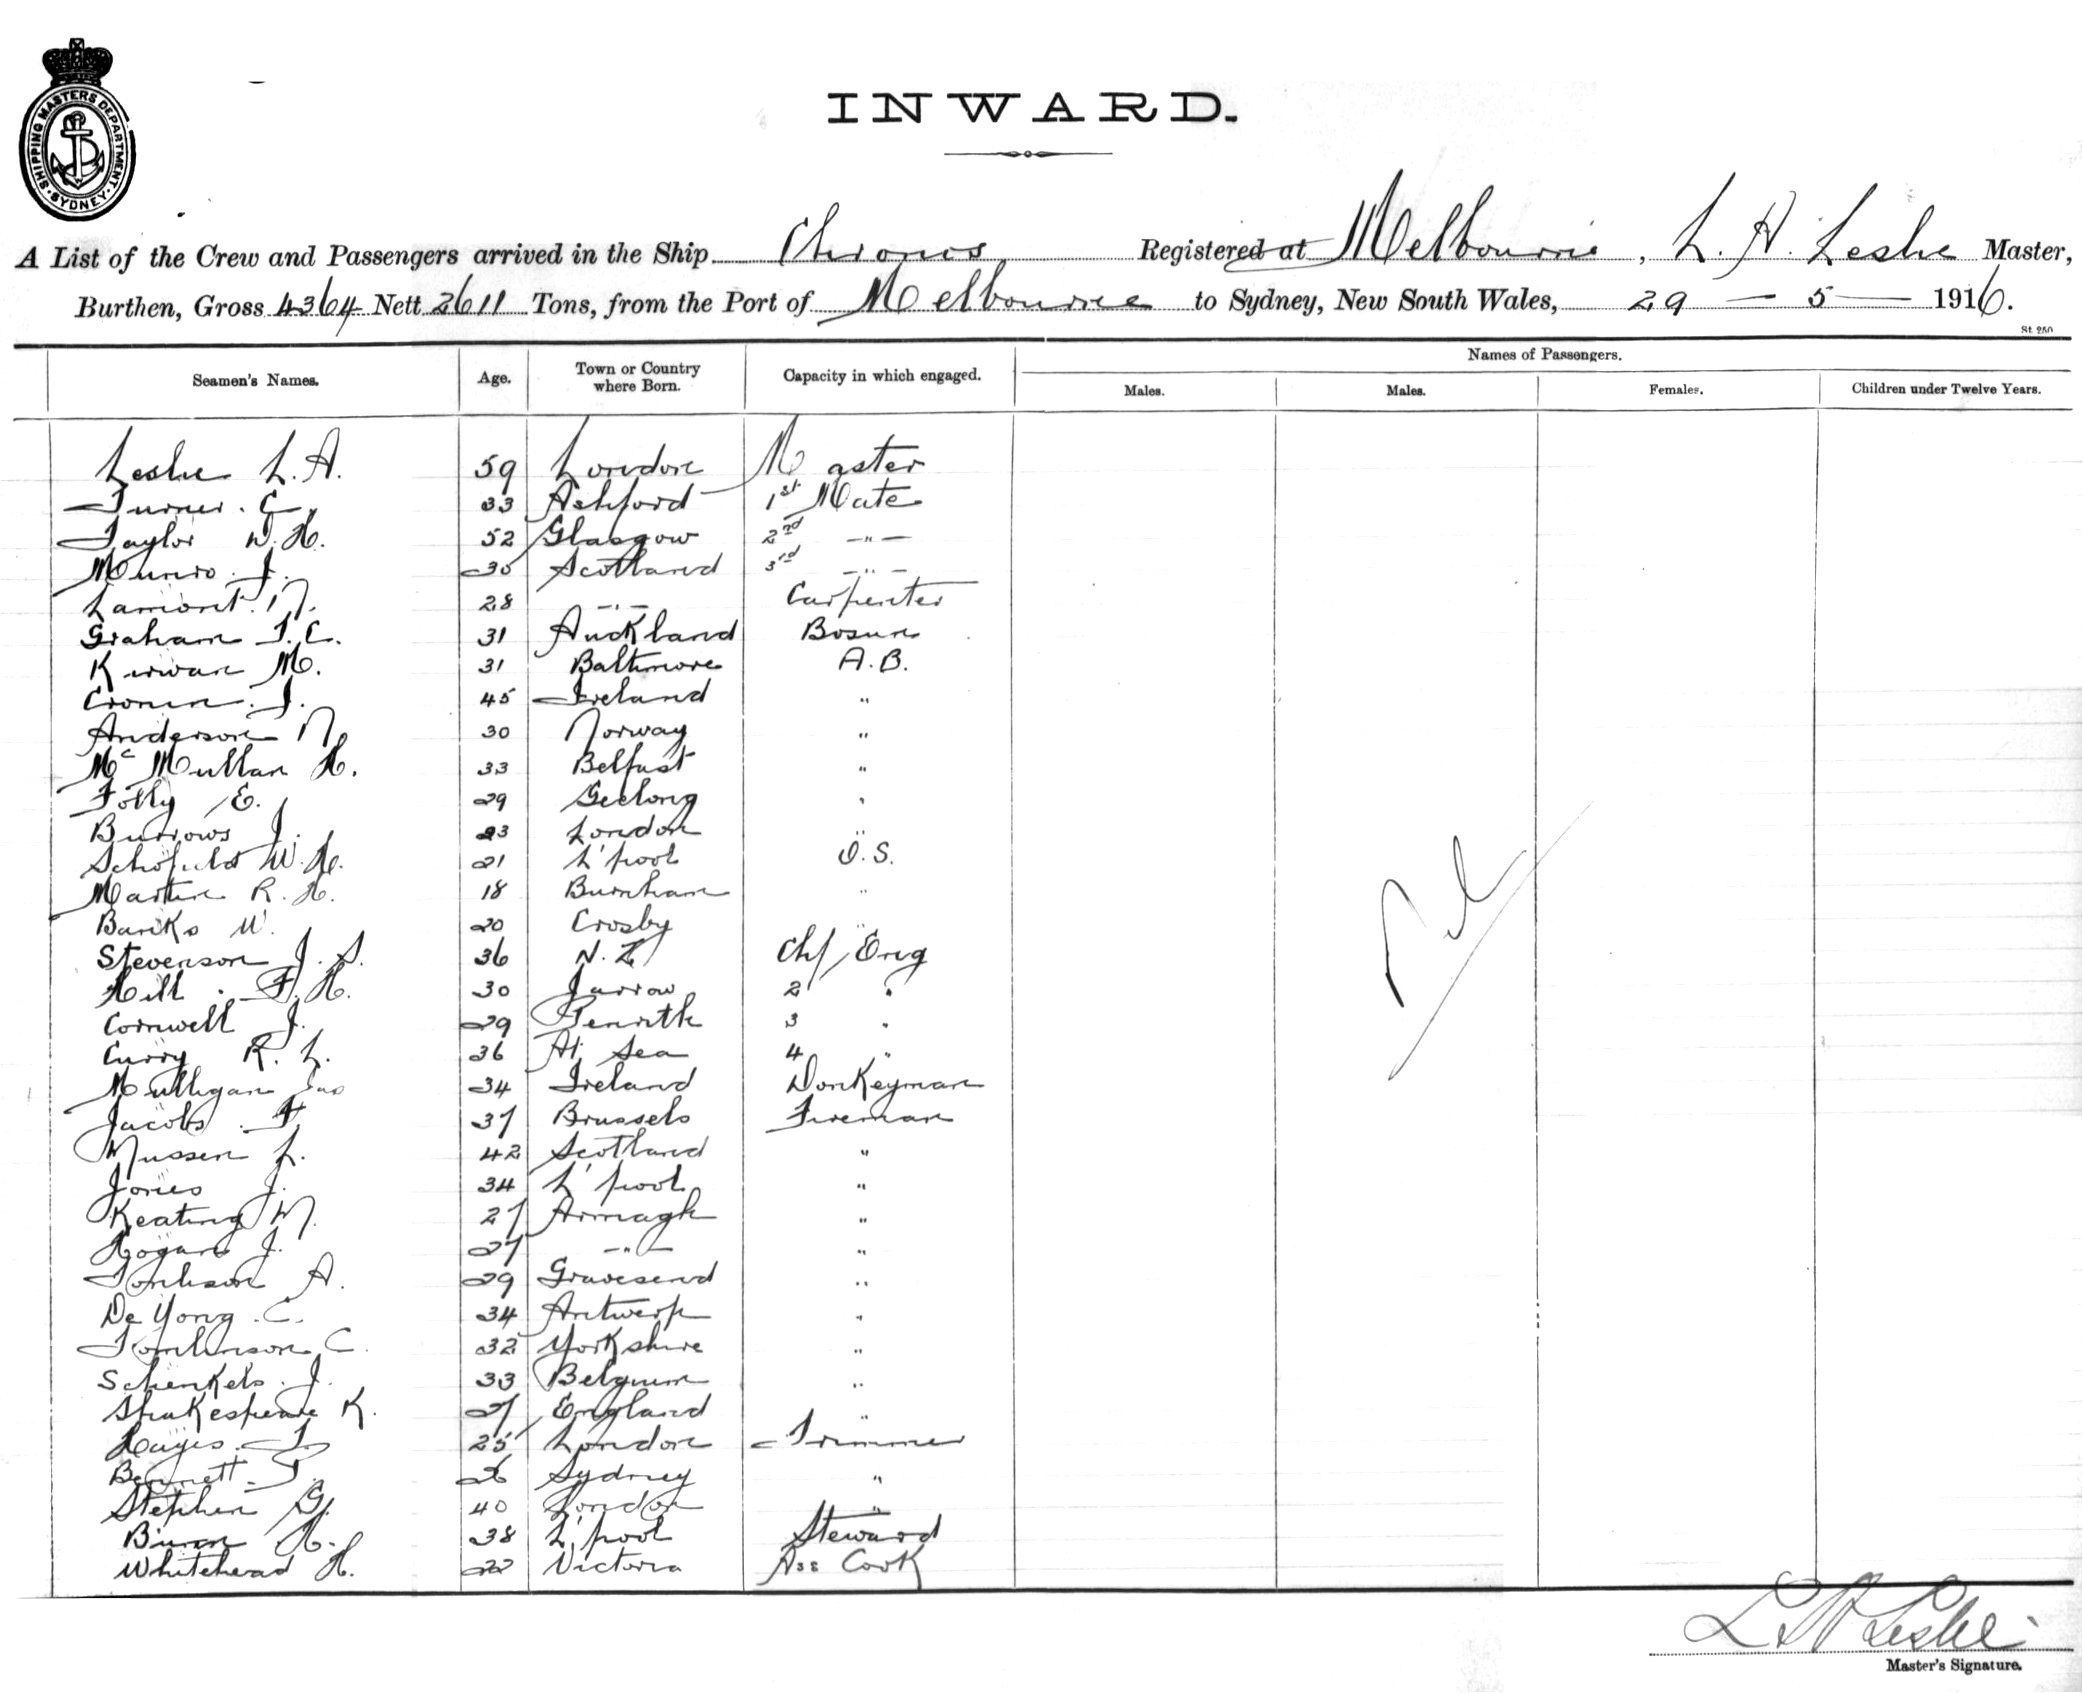 SHIPPING MASTERS DEPARTMENT · SYDNEY ·
INWARD.
A List of the Crew and Passengers arrived in the Ship Chronos Registered at Melbourne, L. A. Leslie Master,
Burthen, Gross 4364 Nett 2611 Tons, from the Port of Melbourne to Sydney, New South Wales, 29 — 5 — 1916.
St. 250
Names of Passengers.
Seamen's Names. Age. Town or Country where Born. Capacity in which engaged. Males. Males. Females. Children under Twelve Years.
Leslie L. A. 59 London Master
Turner. C. 33 Ashford 1st Mate
Taylor W. H. 52 Glasgow 2nd —"—
Munro. J. 30 Scotland 3rd —"—
Lamont. N. 28 —"— Carpenter
Graham T. C. 31 Auckland Bosun
Kirwan M. 31 Baltimore A.B.
Cronin. J. 45 Ireland "
Anderson N 30 Norway "
Mc Mullan H. 33 Belfast "
Folly E. 29 Geelong "
Burrows J. 23 London "
Schofield W. H. 21 L'pool O.S.
Martin R. H. 18 Burnham "
Banks W. 20 Crosby "
Stevenson J. S. 36 N.Z. Chf Eng
Hill. F. H. 30 Jarrow 2 "
Cornwell J. 29 Penrith 3 "
Curry R. L. 36 At Sea 4 "
Mulligan Jas 34 Ireland Donkeyman
Jacobs. F 37 Brussels Fireman
Mussen L. 42 Scotland "
Jones J. 34 L'pool "
Keating M. 27 Armagh "
Hogan J. 27 —"— "
Tomlison A. 29 Gravesend "
De Yong. C. 34 Antwerp "
Tomlinson C. 32 Yorkshire "
Schenkels. J. 33 Belgium "
Shakespeare K. 27 England "
Hayes. T. 25 London Trimmer
Bennett T. 26 Sydney "
Stephen G. 40 London "
H. 38 L'pool Steward
Whitehead H. 22 Victoria Ass Cook
Nil
L A Leslie
Master's Signature.